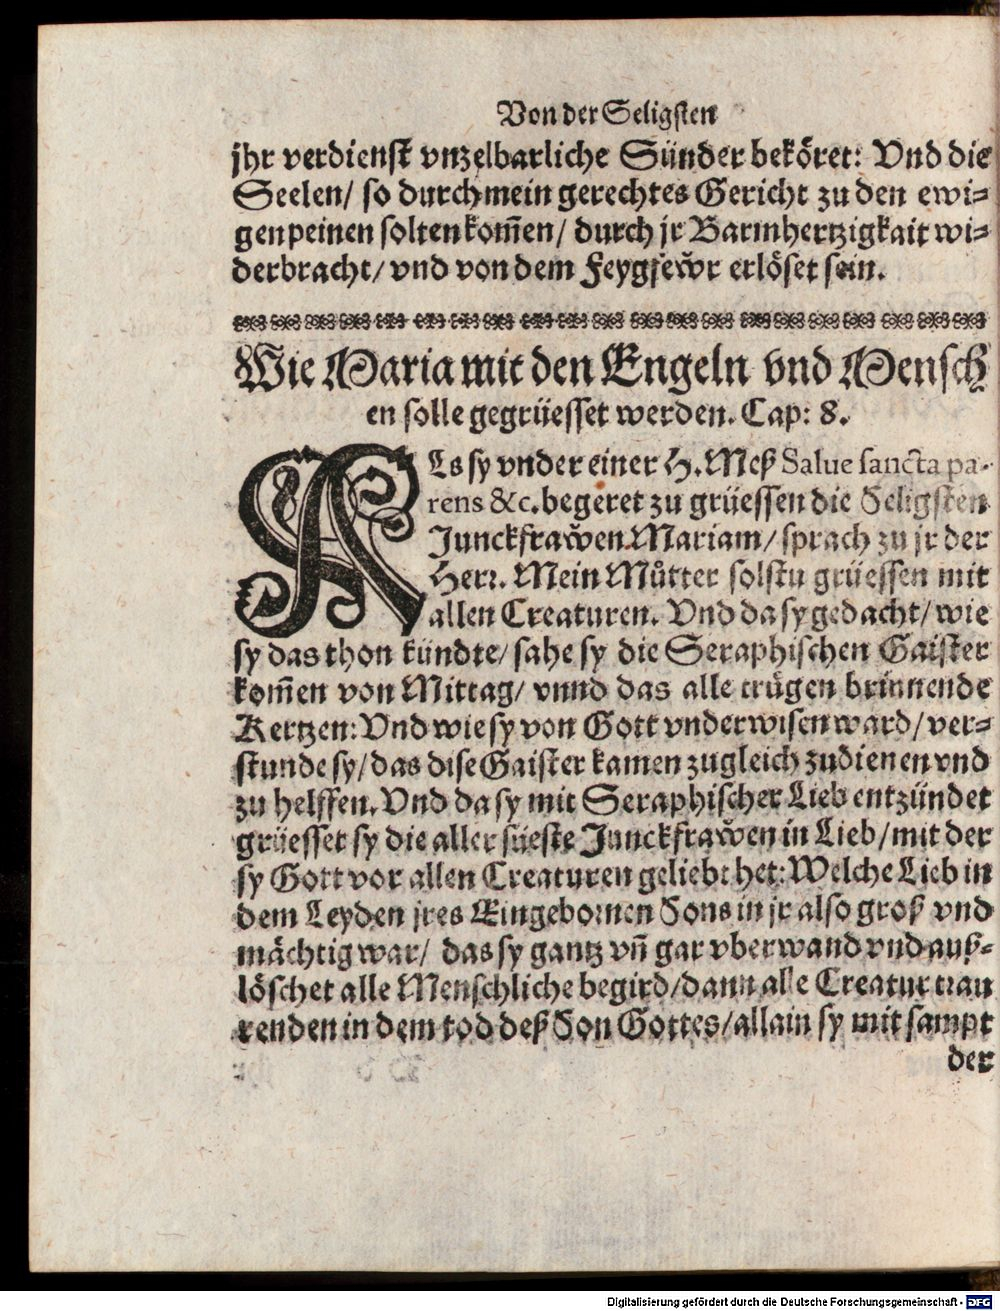 Von der Seligsten
jhr verdienst vnzelbarliche Sünder beköret: Vnd die
Seelen/ so durch mein gerechtes Gericht zu den ewi⸗
gen peinen solten kom̃en/ durch jr Barmhertzigkait wi⸗
derbracht/ vnd von dem Feygfewr erlöset sein.
Wie Maria mit den Engeln vnd Mensch
en solle gegrüesset werden. Cap: 8.
ALs sy vnder einer H. Meß Salue sancta pa-
rens &c. begeret zu grüessen die Seligsten
Junckfrawen Mariam/ sprach zu jr der
Herr. Mein Můtter solstu grüessen mit
allen Creaturen. Vnd da sy gedacht/ wie
sy das thon kündte/ sahe sy die Seraphischen Gaister
kom̃en von Mittag/ vnnd das alle trůgen brinnende
Kertzen: Vnd wie sy von Gott vnderwisen ward/ ver⸗
stunde sy/ das dise Gaister kamen zugleich zudienen vnd
zu helffen. Vnd da sy mit Seraphischer Lieb entzündet
grüesset sy die aller süeste Junckfrawen in Lieb/ mit der
sy Gott vor allen Creaturen geliebt het: Welche Lieb in
dem Leyden jres Eingebornen Sons in jr also groß vnd
mächtig war/ das sy gantz vñ gar vberwand vnd auß⸗
löschet alle Menschliche begird/ dann alle Creatur trau
renden in dem tod deß Son Gottes/ allain sy mit sampt
der
Digitalisierung gefördert durch die Deutsche Forschungsgemeinschaft - DFG